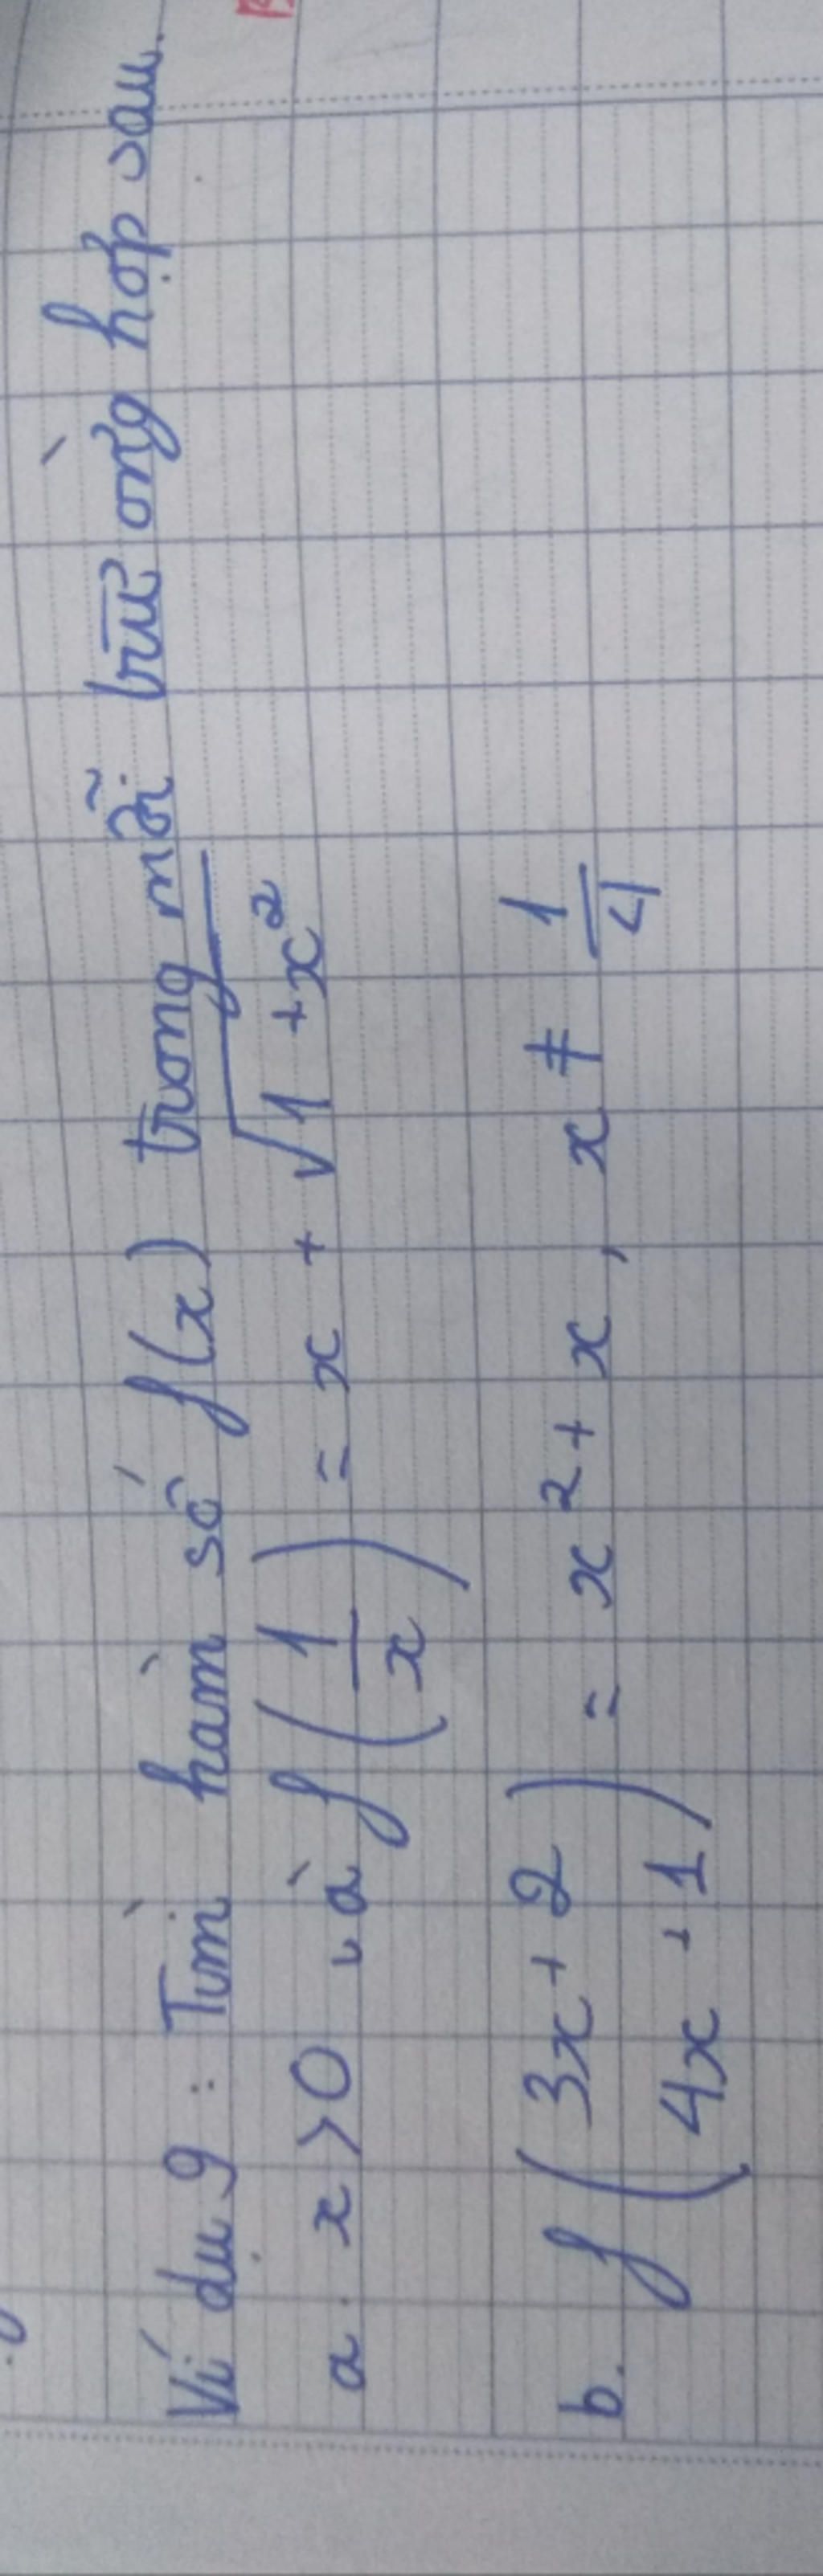 Ví dụ 9 : Tìm hàm số f(x) trong mỗi trường hợp sau.
a. x > 0 và f(1/x) = x + √(1 + x²)
b. f((3x + 2)/(4x + 1)) = x² + x, x ≠ 1/4